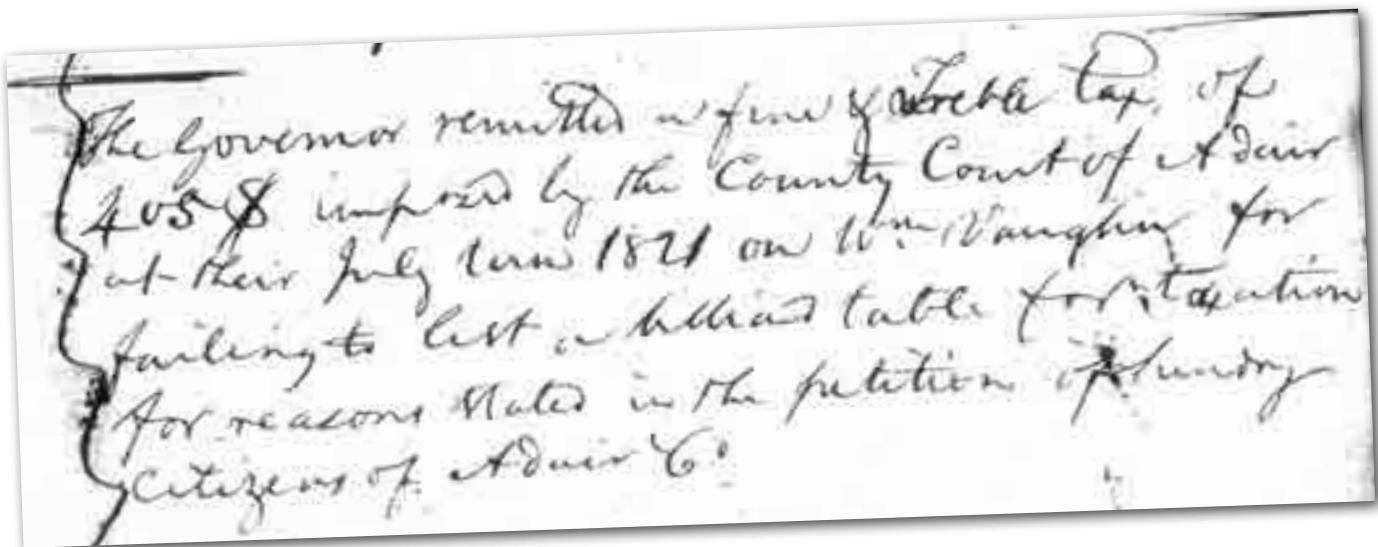 The Governor remitted a fine & Treble tax, of
405 $ imposed by the County Court of Adair
at their July term 1821 on Wm Vaughn for
failing to list a billiard table for taxation
for reasons stated in the petition of sundry
Citizens of Adair Co